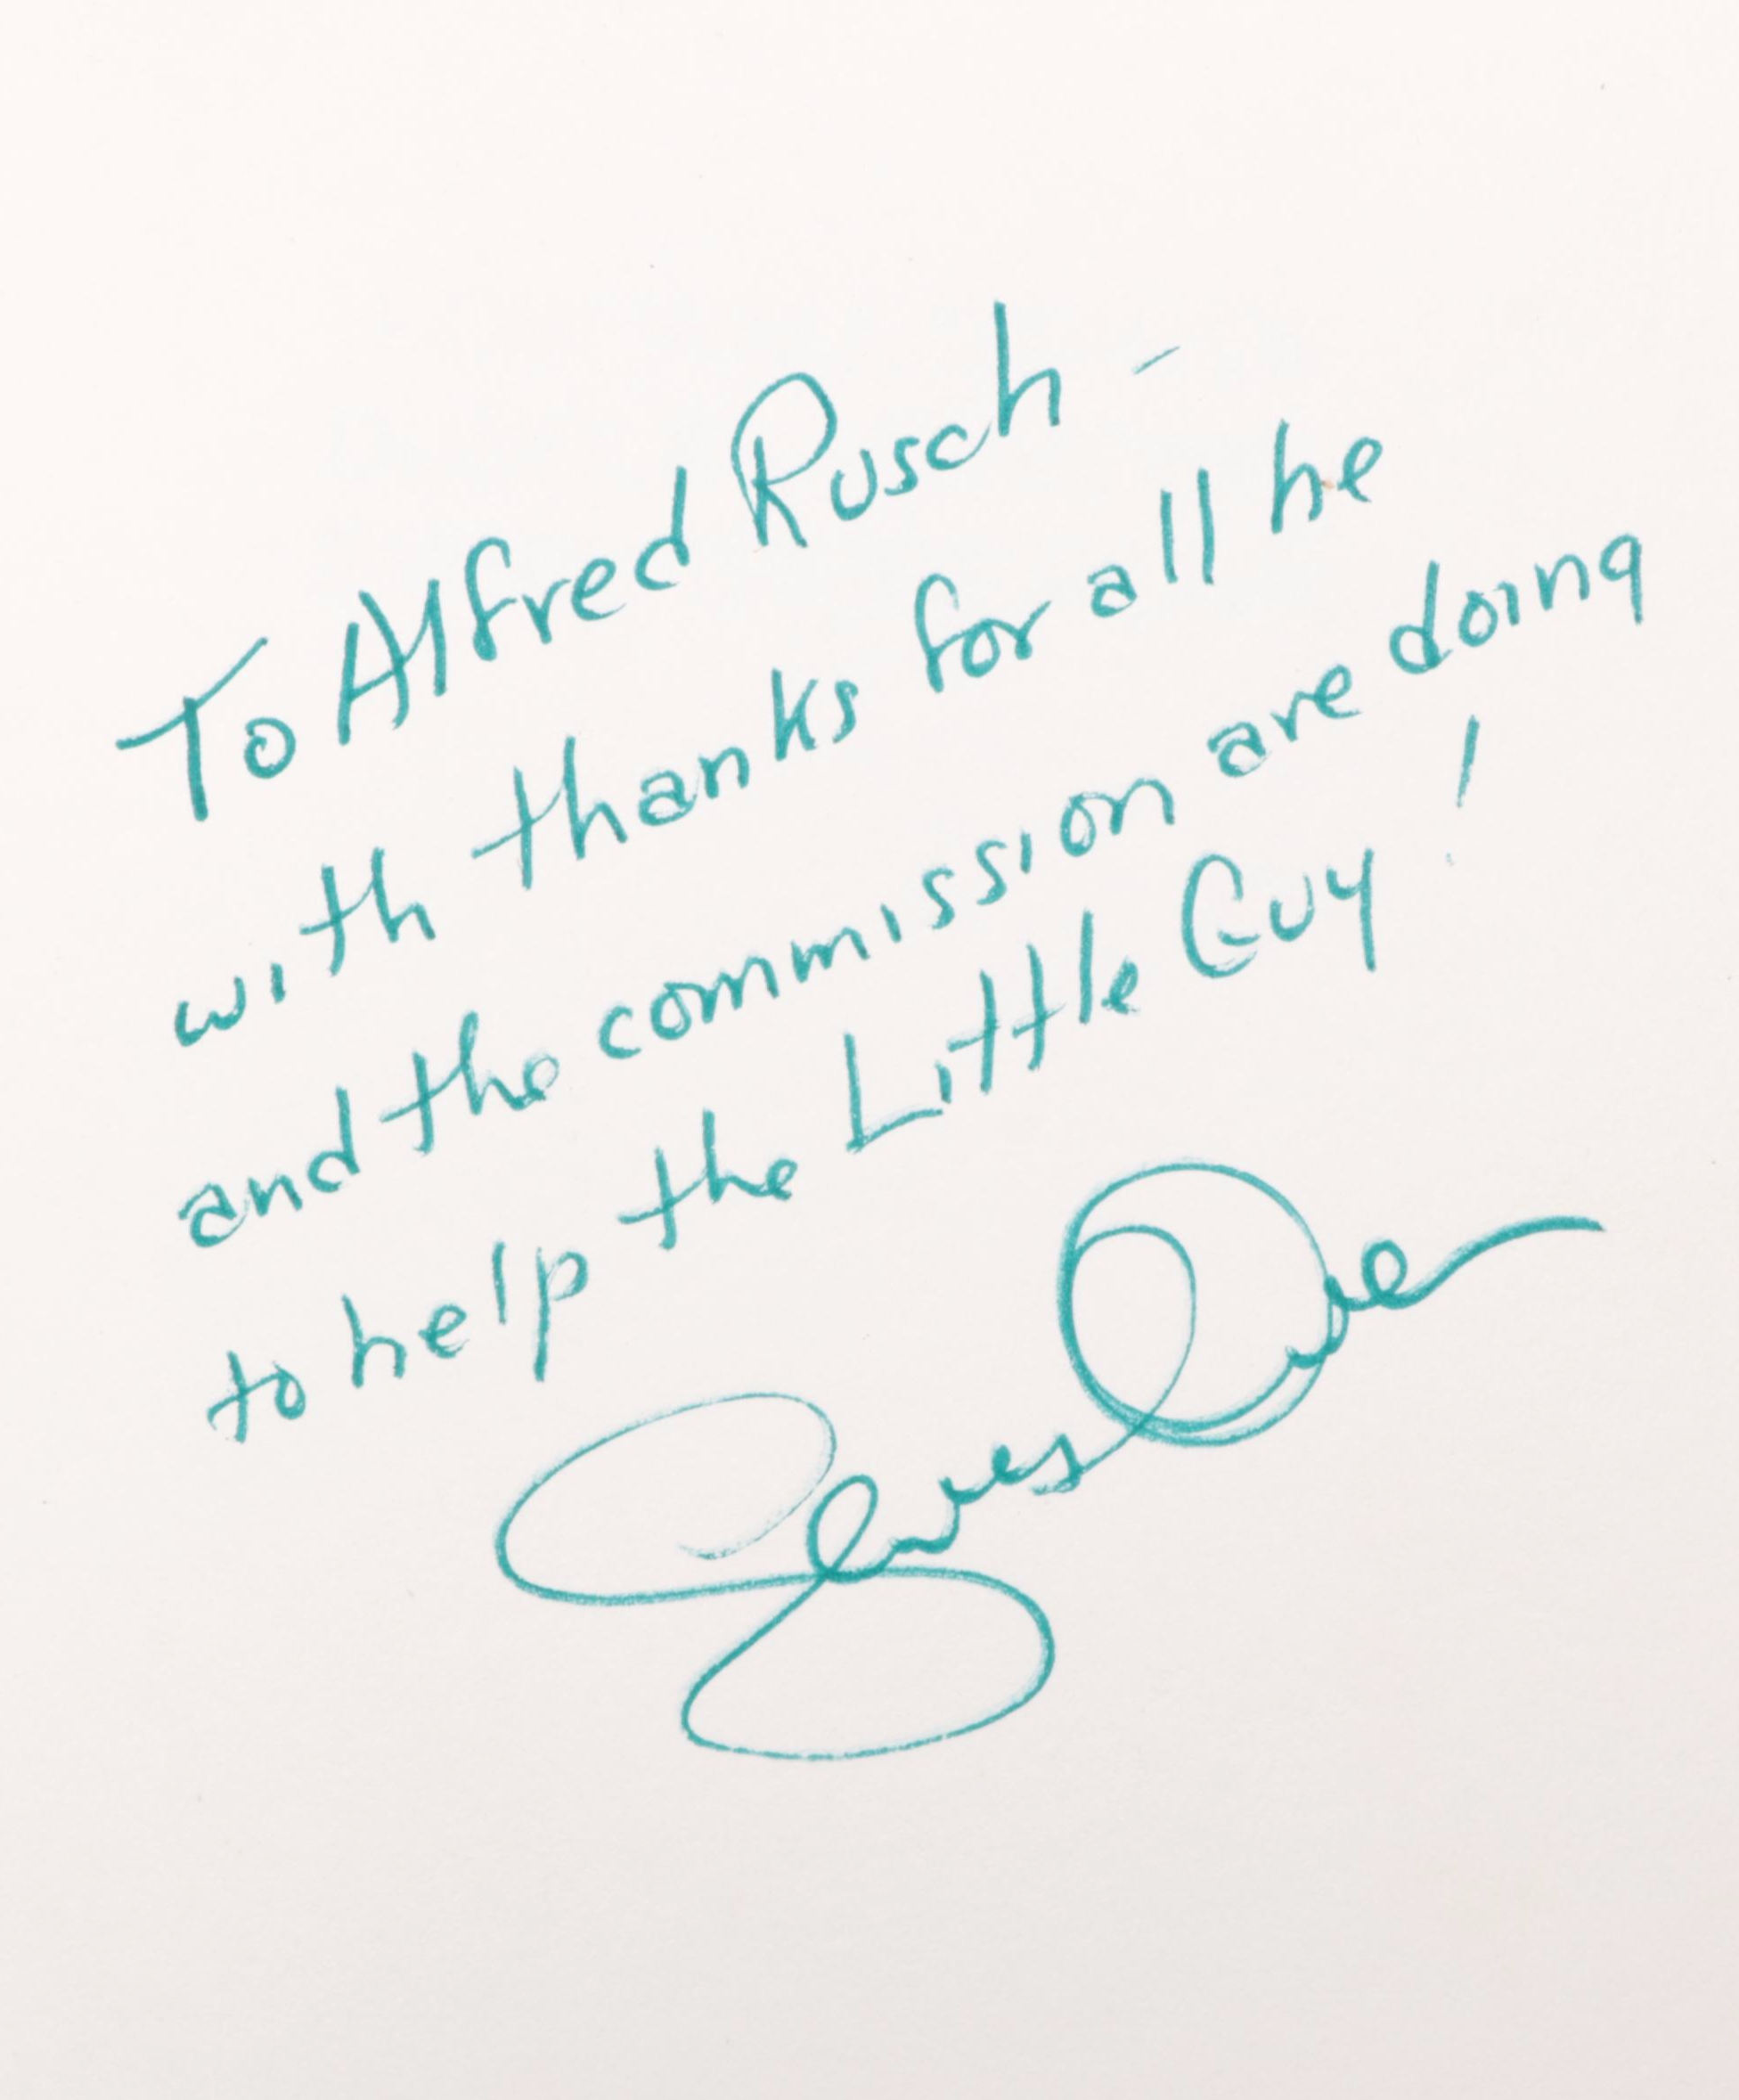 To Alfred Rusch -
with thanks for all he
and the commission are doing
to help the Little Guy!